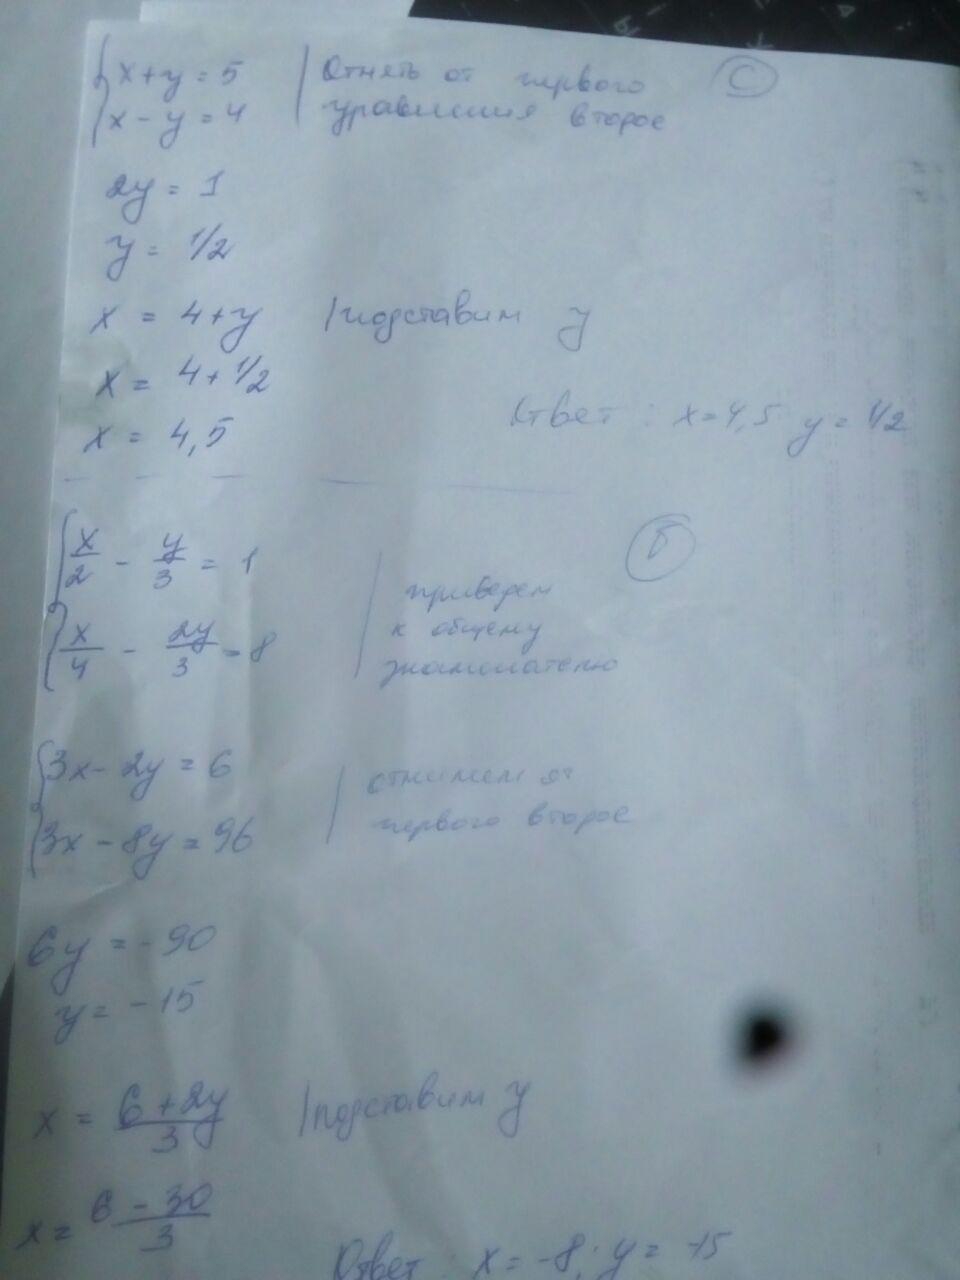 x + y = 5 | Отнять от первого С
x - y = 4 | уравнения второе
2y = 1
y = 1/2
x = 4 + y | подставим y
x = 4 + 1/2
x = 4,5
Ответ : x = 4,5 y = 1/2
Б
x/2 - y/3 = 1 | приведем
x/4 - 2y/3 = 8 | к общему
знаменателю
3x - 2y = 6 | отнимем от
3x - 8y = 96 | первого второе
6y = - 90
y = - 15
x = 6 + 2y/3 | подставим y
x = 6 - 30/3
Ответ : x = -8; y = -15